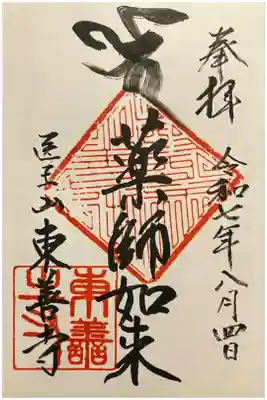 奉拝
令和七年八月四日
薬師如来
医王山
東善寺